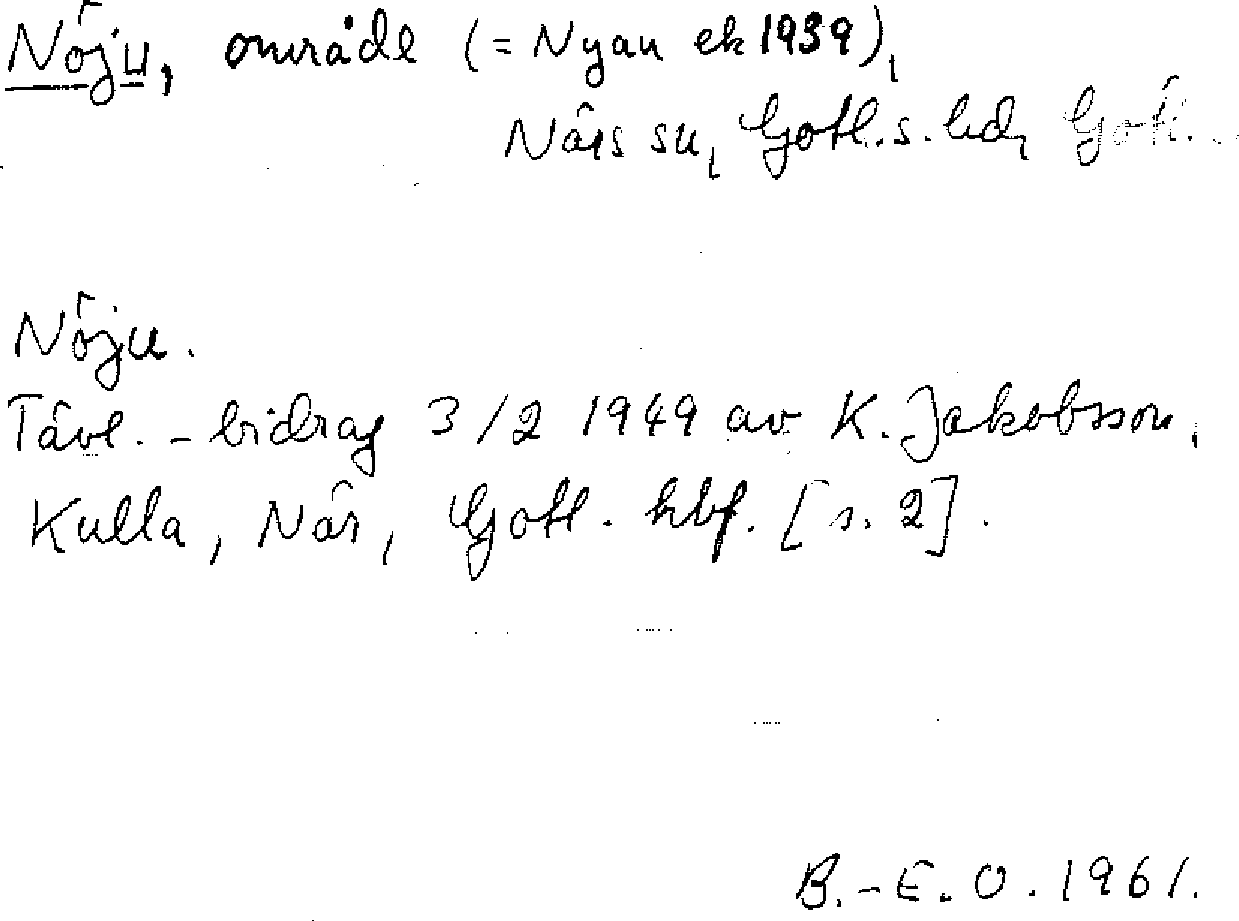 Nöju, område (= Nyan ek 1939),
När s sn, Gotl. s. hd, Gotl.
Nöju.
Tävl. - bidrag 3/2 1949 av K. Jakobsson,
Kulla, När, Gotl. hbf. [s. 2].
B.-E. O. 1961.